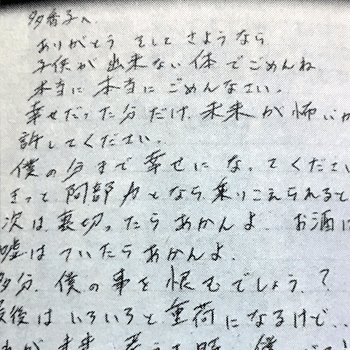 多香子へ
ありがとう そして さようなら
子供が出来ない体でごめんね
本当に本当にごめんなさい。
幸せだった分だけ、未来が怖いか
許してください。
僕の分まで幸せになってくださ
きっと阿部力となら乗りこえられると
次は、裏切ったらあかんよ お酒に
嘘はついたらあかんよ。
多分、僕の事を恨むでしょう?
最後はいろいろと重荷になるけど…
未来 考える時 僕